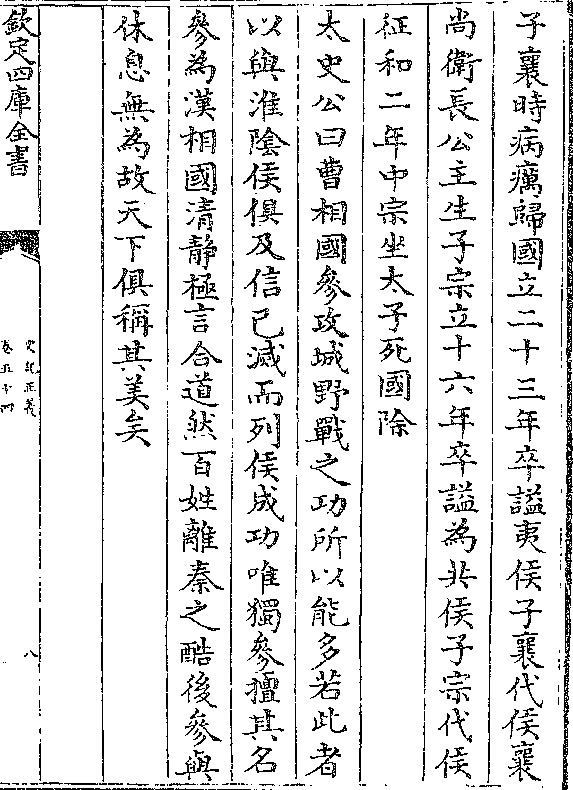 子襄時病癘歸國立二十三年卒諡夷侯子襄代侯襄
尚衛長公主生子宗立十六年卒諡為共侯子宗代侯
征和二年中宗坐太子死國除
太史公曰曹相國參攻城野戰之功所以能多若此者
以與淮陰侯俱及信已滅而列侯成功唯獨參擅其名
參為漢相國清靜極言合道然百姓離秦之酷後參與
休息無為故天下俱稱其美矣
欽定四庫全書
史記正義
卷五十四
八